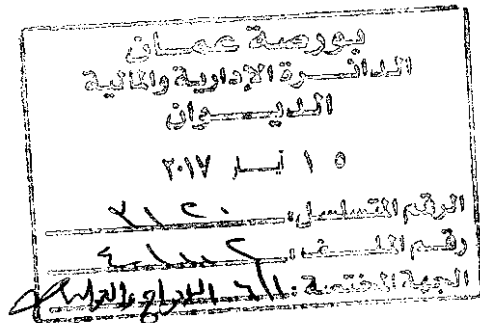 بورصة عمان
الدائرة الإدارية والمالية
الديوان
١٥ أيار ٢٠١٧
الرقم المتسلسل:
رقم الملف:
الجهة المختصة: الإدراج